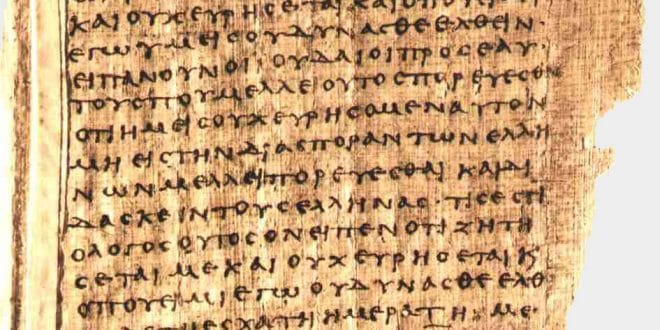 ΚΑΙΟΥΧΕΥΡΗCΕΤΑΙΚΑΙΟΠΟΥ
ΕΓΩΥΜΕΙCΟΥΔΥΝΑCΘΕΕΛΘΕΙΝ·
ΕΙΠΑΝΟΥΝΟΙΙΟΥΔΑΙΟΙΠΡΟCΕΑΥ·
ΤΟΥCΠΟΥΜΕΛΛΕΙΟΥΤΟCΠΟΡΕΥΕC
ΟΤΙΗΜΕΙCΟΥΧΕΥΡΗCΟΜΕΝΑΥΤΟΝ
ΜΗΕΙCΤΗΝΔΙΑCΠΟΡΑΝΤΩΝΕΛΛΗ
ΝΩΝΜΕΛΛΕΙΠΟΡΕΥΕCΘΑΙΚΑΙΔΙ
ΔΑCΚΕΙΝΤΟΥCΕΛΛΗΝΑC·ΤΙCΕCΤΙ
ΟΛΟΓΟCΟΥΤΟCΟΝΕΙΠΕΝΟΤΙΖΗΤΗ
CΕΤΑΙΜΕΚΑΙΟΥΧΕΥΡΗCΕΤΑΙΚ
ΟΠΟΥΕΙΜΙΕΓΩΟΥΔΥΝΑCΘΕΕΛΘ
ΕCΧΑΤΗΗΜΕΡΑΤΗ ΜΕ